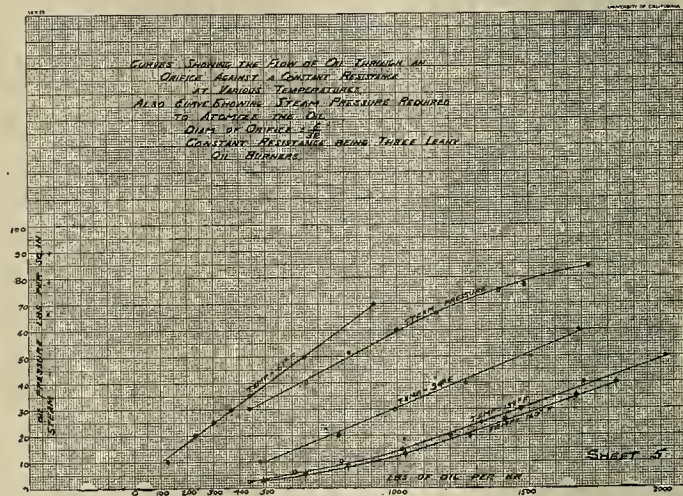 UNIVERSITY OF CALIFORNIA
CURVES SHOWING THE FLOW OF OIL THROUGH AN
ORIFICE AGAINST A CONSTANT RESISTANCE
AT VARIOUS TEMPERATURES
ALSO CURVE SHOWING STEAM PRESSURE REQUIRED
TO ATOMIZE THE OIL
DIAM OF ORIFICE =
CONSTANT RESISTANCE BEING THREE LEAHY
OIL BURNERS
100
90
80
70
60
50
40
30
20
10
OIL PRESSURE LBS. PER SQ. IN
STEAM
TEMP
STEAM PRESSURE
TEMP
TEMP
TEMP
SHEET 5
LBS OF OIL PER HR
0 100 200 300 400 500 1000 1500 2000